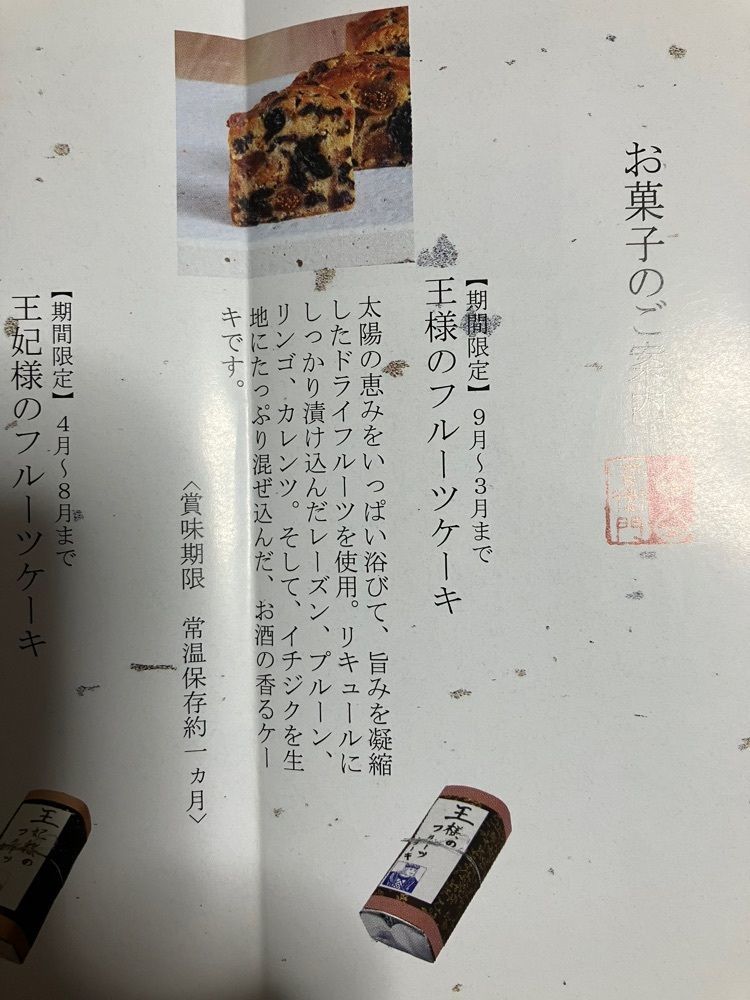 お菓子のご案内
【期間限定】 9月～3月まで
王様のフルーツケーキ
太陽の恵みをいっぱい浴びて、旨みを凝縮
したドライフルーツを使用。リキュールに
しっかり漬け込んだレーズン、プルーン、
リンゴ、カレンツ。そして、イチジクを生
地にたっぷり混ぜ込んだ、お酒の香るケー
キです。
〈賞味期限　常温保存約一ヵ月〉
王様の
フルーツ
ケーキ
【期間限定】 4月～8月まで
王妃様のフルーツケーキ
王妃様の